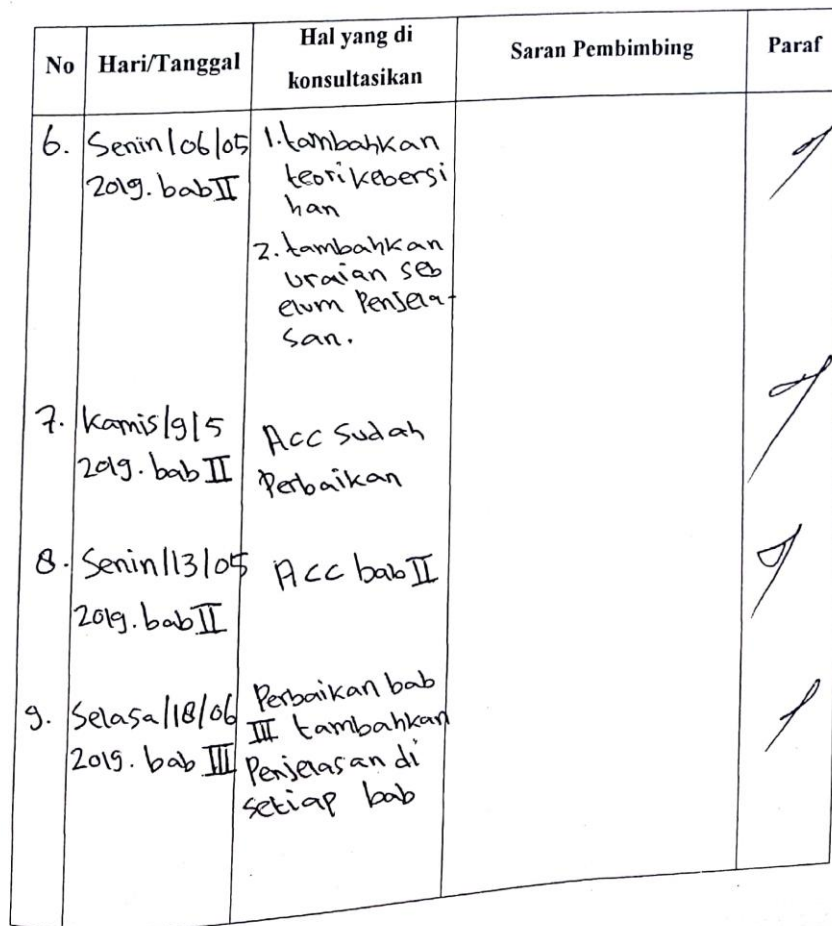 No Hari/Tanggal Hal yang di konsultasikan Saran Pembimbing Paraf
6. Senin/06/05 2019. bab II
1. tambahkan
teori kebersi
han
2. tambahkan
uraian seb
elum Penjela-
san.
7. Kamis/9/5
2019. bab II
Acc sudah
Perbaikan
8. Senin/13/05
2019. bab II
Acc bab II
9. Selasa/18/06
2019. bab III
Perbaikan bab
III tambahkan
Penjelasan di
setiap bab